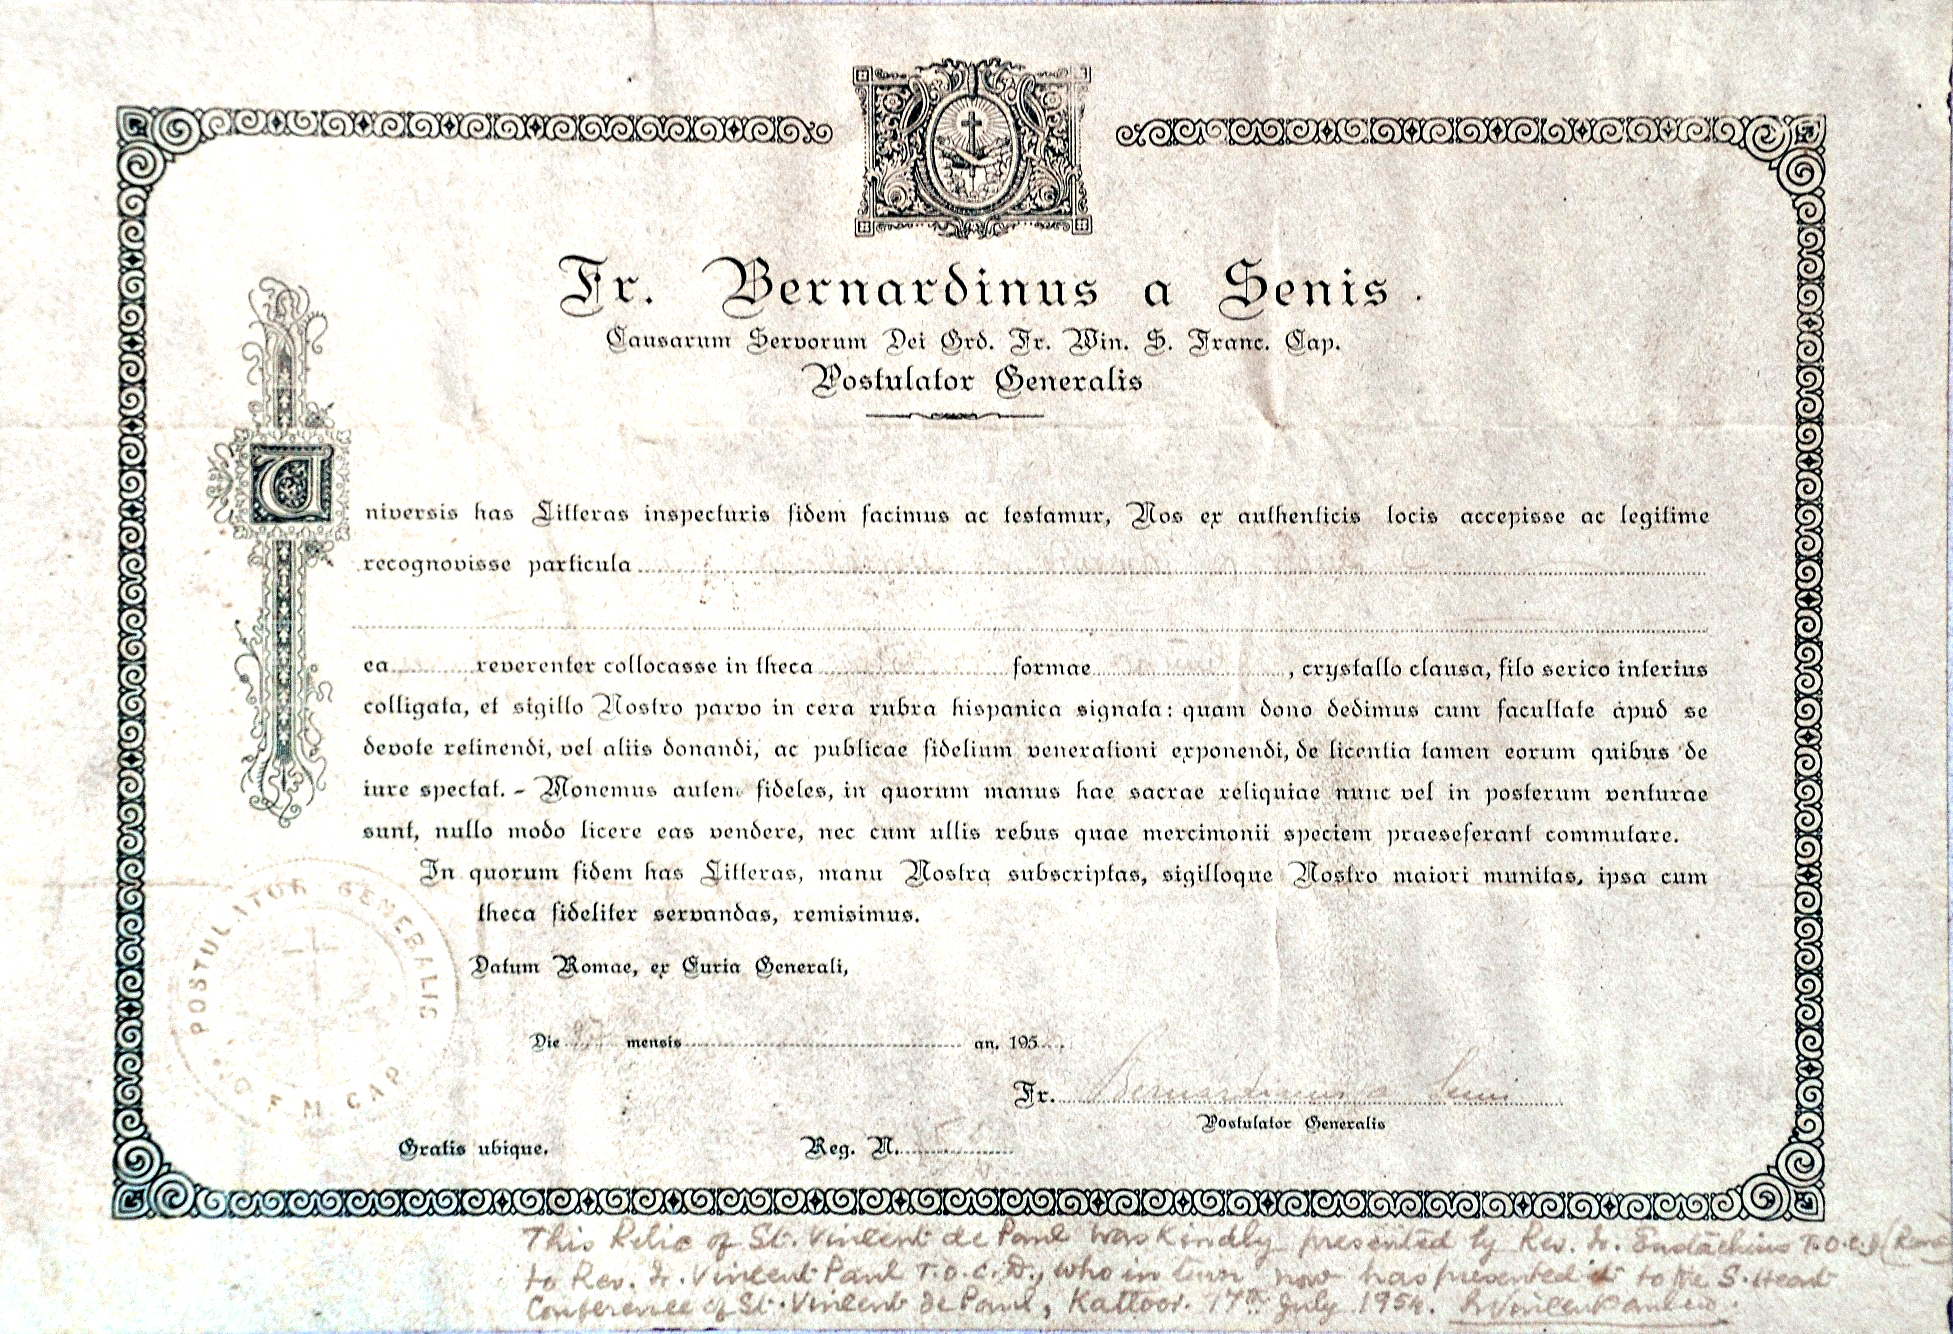 Fr. Bernardinus a Senis.
Causarum Servorum Dei Ord. Fr. Min. S. Franc. Cap.
Postulator Generalis
Universis has Litteras inspecturis fidem facimus ac testamur, Nos ex authenticis locis accepisse ac legitime
recognovisse particula
ea reverenter collocasse in theca formae , crystallo clausa, filo serico interius
colligata, et sigillo Nostro parvo in cera rubra hispanica signata: quam dono dedimus cum facultate apud se
devote retinendi, vel aliis donandi, ac publicae fidelium venerationi exponendi, de licentia tamen eorum quibus de
iure spectat. - Monemus autem fideles, in quorum manus hae sacrae reliquiae nunc vel in posterum venturae
sunt, nullo modo licere eas vendere, nec cum ullis rebus quae mercimonii speciem praeseferant commutare.
In quorum fidem has Litteras, manu Nostra subscriptas, sigilloque Nostro maiori munitas, ipsa cum
theca fideliter servandas, remisimus.
Datum Romae, ex Curia Generali,
POSTULATOR GENERALIS
O F M CAP
Die mensis an. 195
Fr. Bernardinus a Senis
Postulator Generalis
Gratis ubique. Reg. N.
This Relic of St. Vincent de Paul was kindly presented by Rev. Fr. Eustachius T.O.C.D (Rome
to Rev. Fr. Vincent Paul T.O.C.D., who in turn now has presented it to the S. Heart
Conference of St. Vincent de Paul, Kattoor. 17th July 1954.